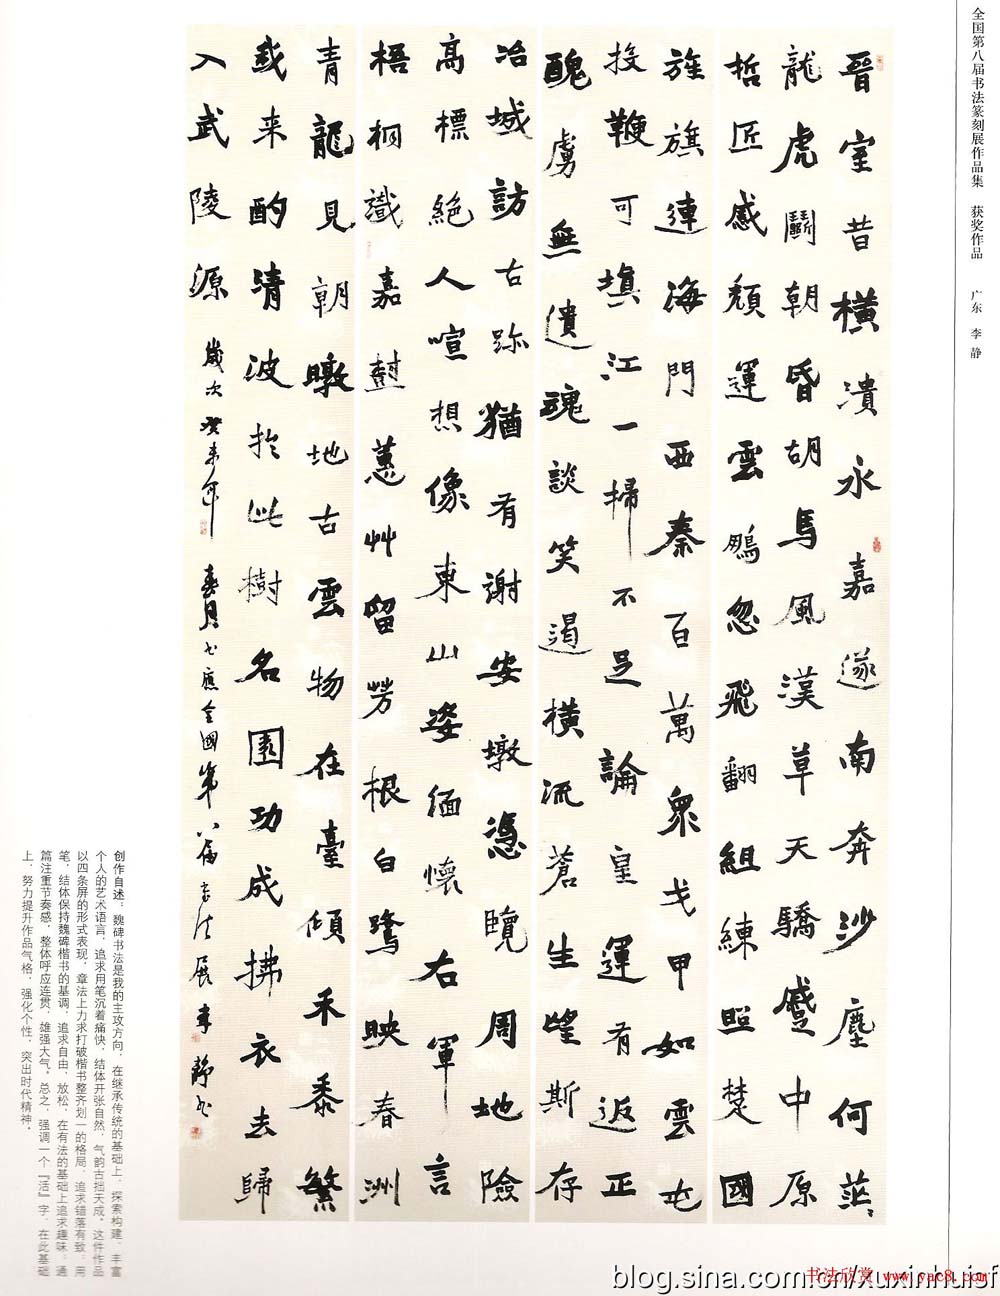 全国第八届书法篆刻展作品集 获奖作品 广东 李静
晉室昔橫潰永嘉遂南奔沙塵何茫〻
龍虎鬭朝昏胡馬風漢草天驕蹙中原
哲匠感頹運雲鵬忽飛翻組練照楚國
旌旗連海門西秦百萬衆戈甲如雲屯
投鞭可填江一掃不足論皇運有返正
醜虜無遺魂談笑遏橫流蒼生望斯存
冶城訪古跡猶有謝安墩憑覽周地險
高標絕人喧想像東山姿緬懷右軍言
梧桐識嘉樹蕙艸留芳根白鷺映春洲
青龍見朝暾地古雲物在臺傾禾黍繁
我来酌清波扵此樹名園功成拂衣去歸
入武陵源 歲次癸未年春月书應全國第八届书法展李靜书
创作自述：魏碑书法是我的主攻方向，在继承传统的基础上，探索构建、丰富
个人的艺术语言，追求用笔沉着痛快，结体开张自然，气韵古拙天成。这件作品
以四条屏的形式表现，章法上力求打破楷书整齐划一的格局，追求错落有致。用
笔、结体保持魏碑楷书的基调，追求自由、放松，在有法的基础上追求趣味。通
篇注重节奏感，整体呼应连贯，雄强大气。总之，强调一个『活』字，在此基础
上，努力提升作品气格，强化个性，突出时代精神。
书法欣赏 www.yac8.com
blog.sina.com.cn/xuxinhuisf